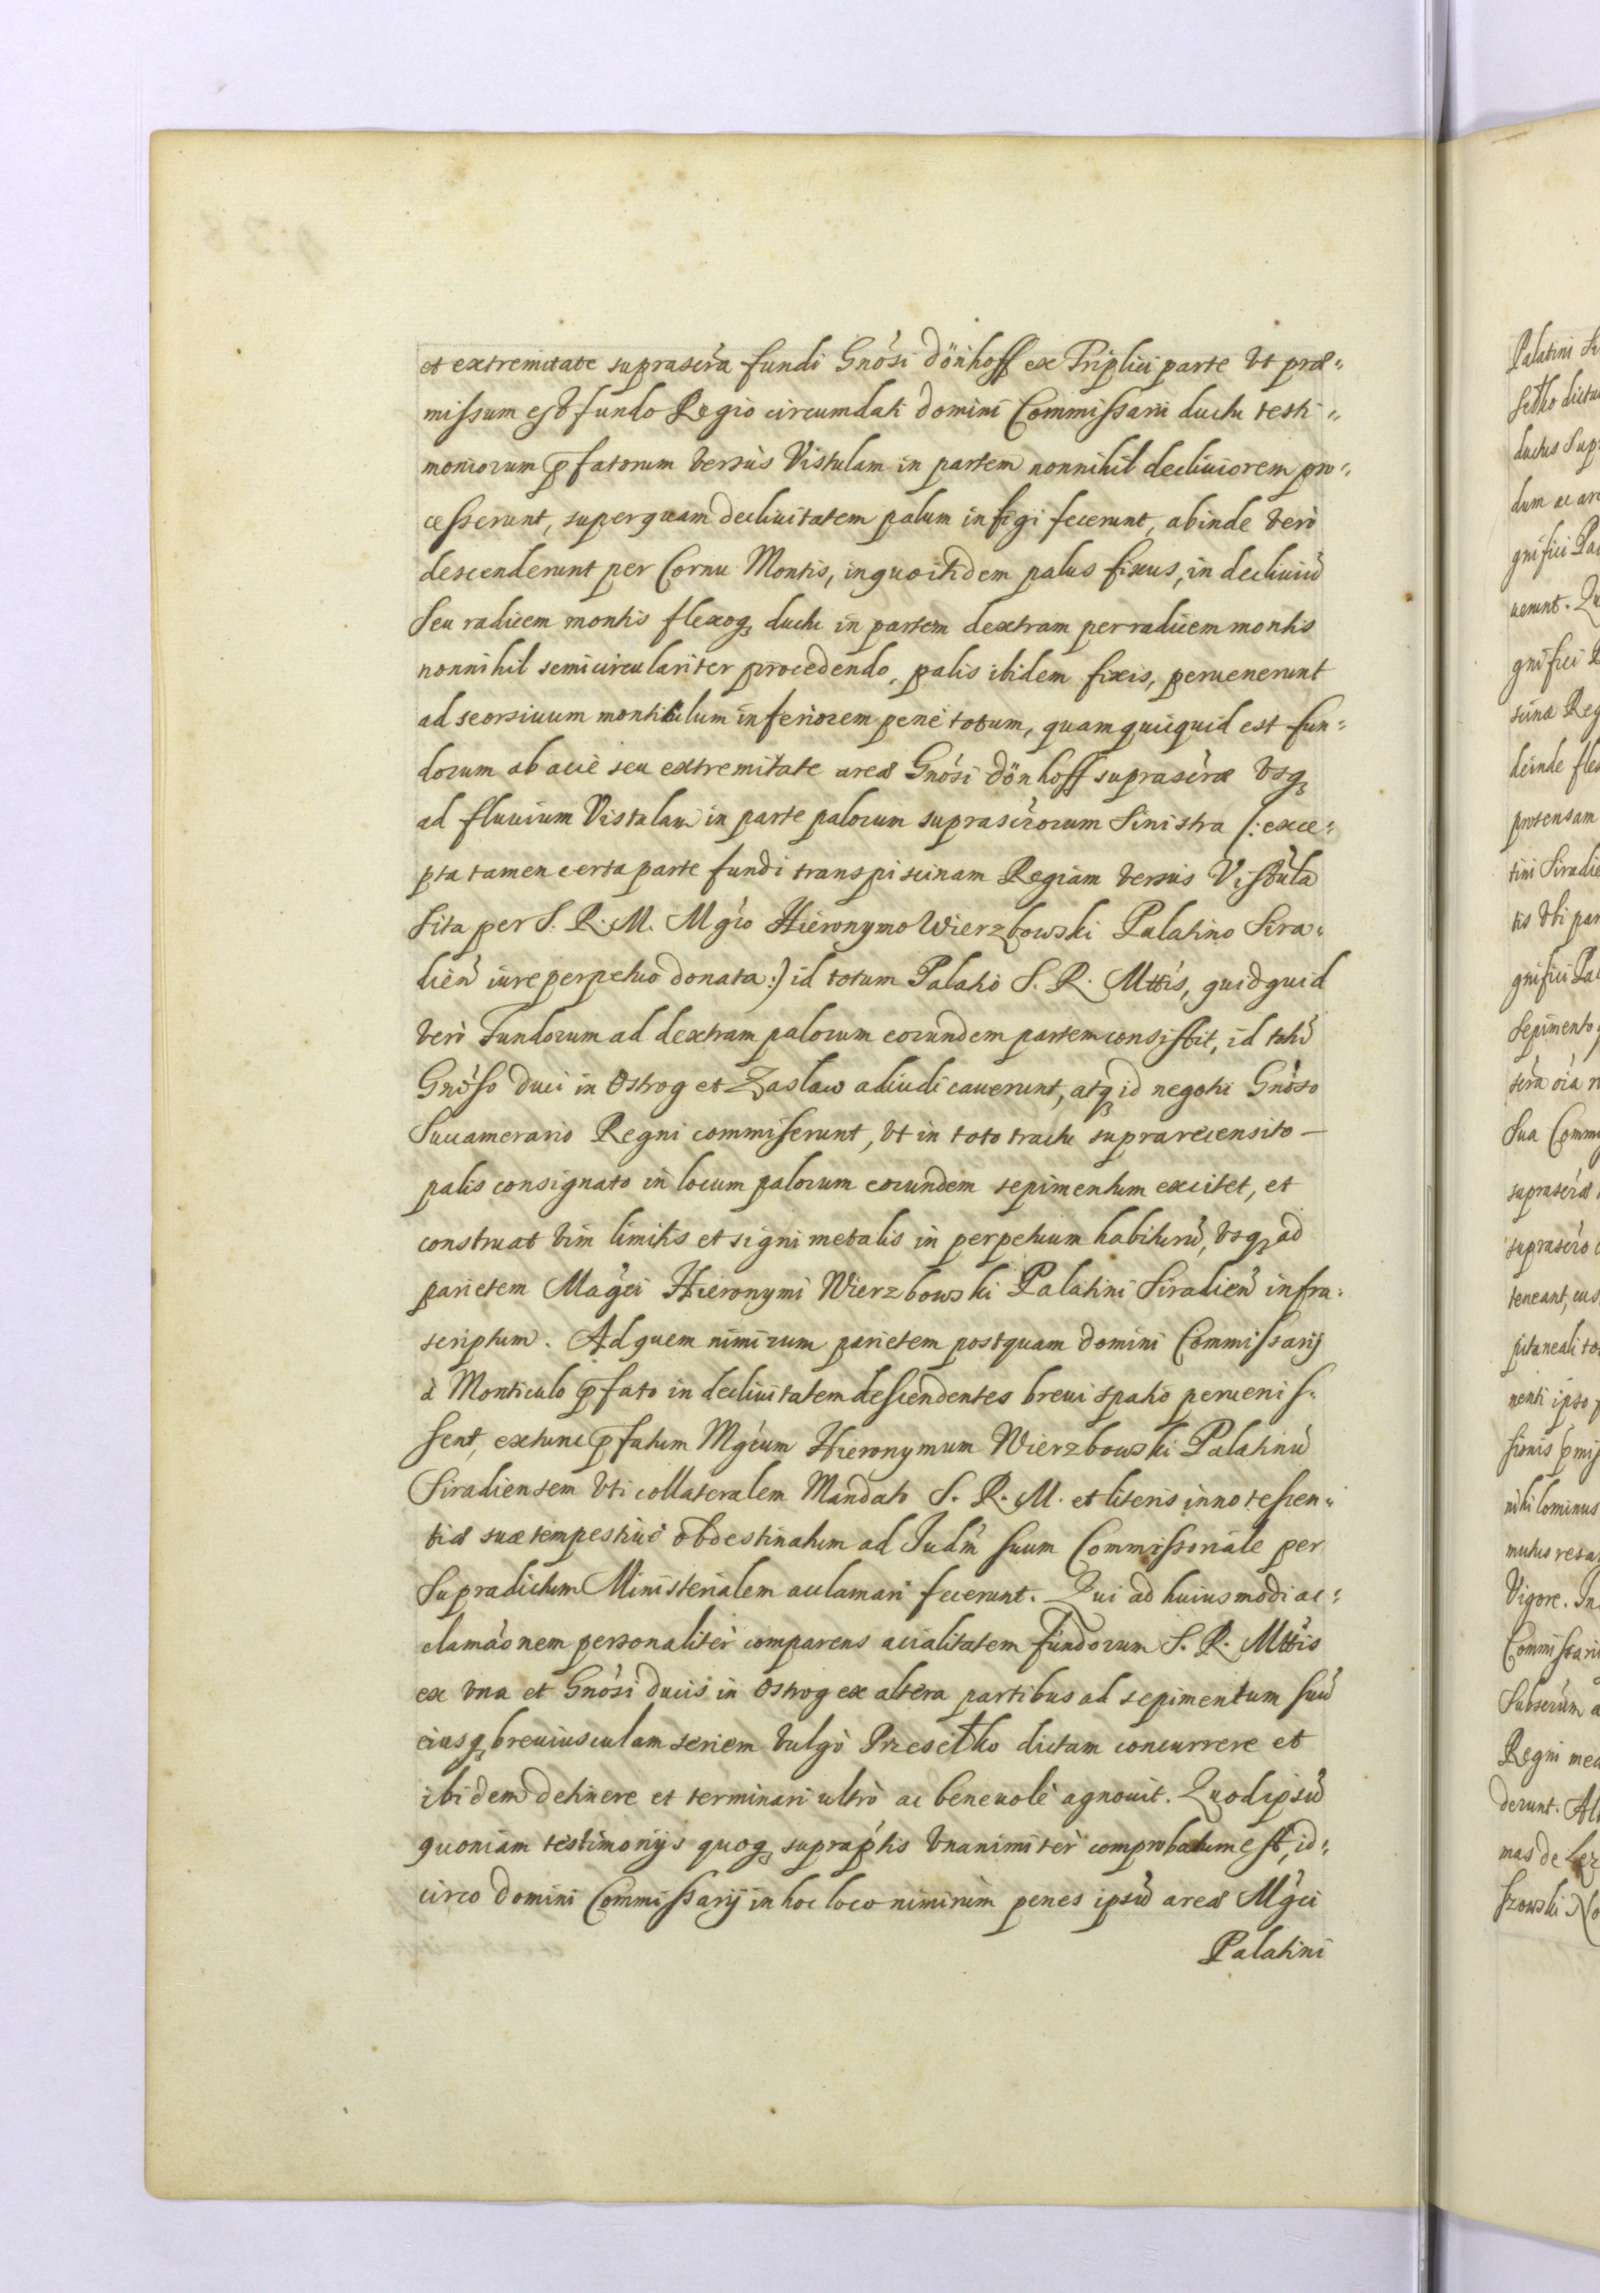 et extremitate suprascra fundi Gnosi Dönhoff ex Triplici parte Vt præ=
missum est fundo Regio circumdati Domini Commissarii ductu testi=
moniorum pfatorum versùs Vistulam in partem nonnihil decliuiorem pro=
cesserunt, super quam decliuitatem palum infigi fecerunt, abinde verò
descenderunt per Cornu Montis, in quo itidem palus fixus, in decliuiū
seu radicem montis flexoq, ductu in partem dextram per radicem montis
nonnihil semicirculariter procedendo, palis ibidem fixis, peruenerunt
ad seorsiuum monticulum inferiorem penè totum, quamquicquid est fun=
dorum ab acie seu extremitate areæ Gnosi Dönhoff suprascræ Vsq,
ad fluuium Vistulam in parte palorum suprascrorum Sinistra /: exce=
pta tamen certa parte fundi trans piscinam Regiam versus Vistulā
sita per S. R. M. Mgco Hieronymo Wierzbowski Palatino Sira=
dień iure perpetuo donata :) id totum Palatio S. R. Mttis, quidquid
verò Fundorum ad dextram palorum eorundem partem consistit, id totū
Gnoso Duci in Ostrog et Zaslaw adiudicauerunt, atq, id negotii Gnoso
Succamerario Regni commiserunt, Vt in toto tractu suprarecensito –
palis consignato in locum palorum eorundem sepimentum excitet, et
construat vim limitis et signi metalis in perpetuum habiturū, Vsq, ad
parietem Magci Hieronymi Wierzbowski Palatini Siradień infra=
scriptum. Ad quem nimirum parietem postquam Domini Commissarij
à Monticulo pfato in decliuitatem descendentes breui spatio peruenis=
sent, extunc pfatum Mgcum Hieronymum Wierzbowski Palatinū
Siradiensem Vti collateralem Mandato S. R. M. et literis innotescen=
tiæ suæ tempestiuè obdestinatum ad Judm suum Commissoriale per
Supradictum Ministerialem acclamari fecerunt. Qui ad huiusmodi ac=
clamãonem personalitèr comparens acialitatem fundorum S. R. Mttis
ex vna et Gnosi Ducis in Ostrog ex altera partibus ad sepimentum suū
eiusq, breuiusculam seriem vulgò Przesełko dictam concurrere et
ibidem desinere et terminari ultrò ac beneuolè agnouit. Quod ipsū
quoniam testimonijs quoq, supraptis vnanimitèr comprobatum est, id=
circo Domini Commissarij in hoc loco nimirùm penes ipsū areæ Mgci
Palatini